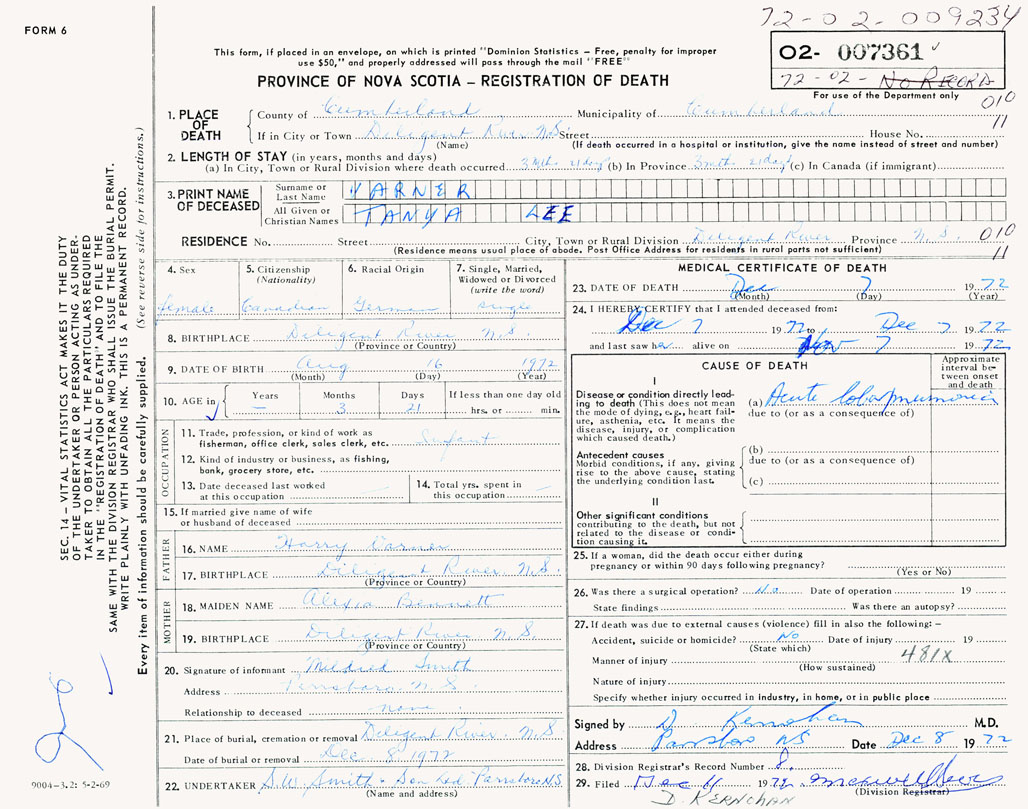 FORM 6
72-02-009234
This form, if placed in an envelope, on which is printed "Dominion Statistics – Free, penalty for improper
use $50," and properly addressed will pass through the mail "FREE"
PROVINCE OF NOVA SCOTIA – REGISTRATION OF DEATH
02- 007361
72-02- No RECORD
For use of the Department only
010
11
1. PLACE OF DEATH
County of Cumberland Municipality of Cumberland
If in City or Town Diligent River N.S. Street House No.
(Name) (If death occurred in a hospital or institution, give the name instead of street and number)
2. LENGTH OF STAY (in years, months and days)
(a) In City, Town or Rural Division where death occurred 3 mths 21 days (b) In Province 3 mths 21 days (c) In Canada (if immigrant)
3. PRINT NAME OF DECEASED
Surname or Last Name VARNER
All Given or Christian Names TANYA LEE
RESIDENCE No. Street City, Town or Rural Division Diligent River Province N.S. 010
(Residence means usual place of abode. Post Office Address for residents in rural parts not sufficient) 11
4. Sex 5. Citizenship (Nationality) 6. Racial Origin 7. Single, Married, Widowed or Divorced (write the word)
female Canadian German single
8. BIRTHPLACE Diligent River N.S.
(Province or Country)
9. DATE OF BIRTH Aug 16 1972
(Month) (Day) (Year)
10. AGE in Years – Months 3 Days 21 If less than one day old hrs. or min.
OCCUPATION
11. Trade, profession, or kind of work as fisherman, office clerk, sales clerk, etc. Infant
12. Kind of industry or business, as fishing, bank, grocery store, etc.
13. Date deceased last worked at this occupation
14. Total yrs. spent in this occupation
15. If married give name of wife or husband of deceased
FATHER
16. NAME Harry Varner
17. BIRTHPLACE Diligent River, N.S.
(Province or Country)
MOTHER
18. MAIDEN NAME Alexia Bennett
19. BIRTHPLACE Diligent River N.S.
(Province or Country)
20. Signature of informant Mildred Smith
Address Parrsboro N.S.
Relationship to deceased none
21. Place of burial, cremation or removal Diligent River, N.S
Date of burial or removal Dec 8, 1972
22. UNDERTAKER S.W. Smith & Son Ltd. Parrsboro NS
(Name and address)
MEDICAL CERTIFICATE OF DEATH
23. DATE OF DEATH Dec 7 1972
(Month) (Day) (Year)
24. I HEREBY CERTIFY that I attended deceased from:
Dec 7 1972 to Dec 7 1972
and last saw her alive on Nov 7 1972
CAUSE OF DEATH
Approximate interval between onset and death
I
Disease or condition directly leading to death (This does not mean the mode of dying, e.g., heart failure, asthenia, etc. It means the disease, injury, or complication which caused death.)
(a) Acute lobar pneumonia
due to (or as a consequence of)
Antecedent causes
Morbid conditions, if any, giving rise to the above cause, stating the underlying condition last.
(b)
due to (or as a consequence of)
(c)
II
Other significant conditions
contributing to the death, but not related to the disease or condition causing it.
25. If a woman, did the death occur either during
pregnancy or within 90 days following pregnancy?
(Yes or No)
26. Was there a surgical operation? No Date of operation 19
State findings Was there an autopsy?
27. If death was due to external causes (violence) fill in also the following: –
Accident, suicide or homicide? No Date of injury 19
(State which)
Manner of injury 481X
(How sustained)
Nature of injury
Specify whether injury occurred in industry, in home, or in public place
Signed by D. Kernohan M.D.
Address Parrsboro NS Date Dec 8 1972
28. Division Registrar's Record Number 8
29. Filed Dec 11 1972
(Division Registrar)
D. KERNOHAN
SEC. 14 – VITAL STATISTICS ACT MAKES IT THE DUTY
OF THE UNDERTAKER OR PERSON ACTING AS UNDER-
TAKER TO OBTAIN ALL THE PARTICULARS REQUIRED
IN THE "REGISTRATION OF DEATH" AND TO FILE THE
SAME WITH THE DIVISION REGISTRAR WHO SHALL ISSUE THE BURIAL PERMIT.
WRITE PLAINLY WITH UNFADING INK. THIS IS A PERMANENT RECORD.
Every item of information should be carefully supplied. (See reverse side for instructions.)
9004-3.2: 5-2-69